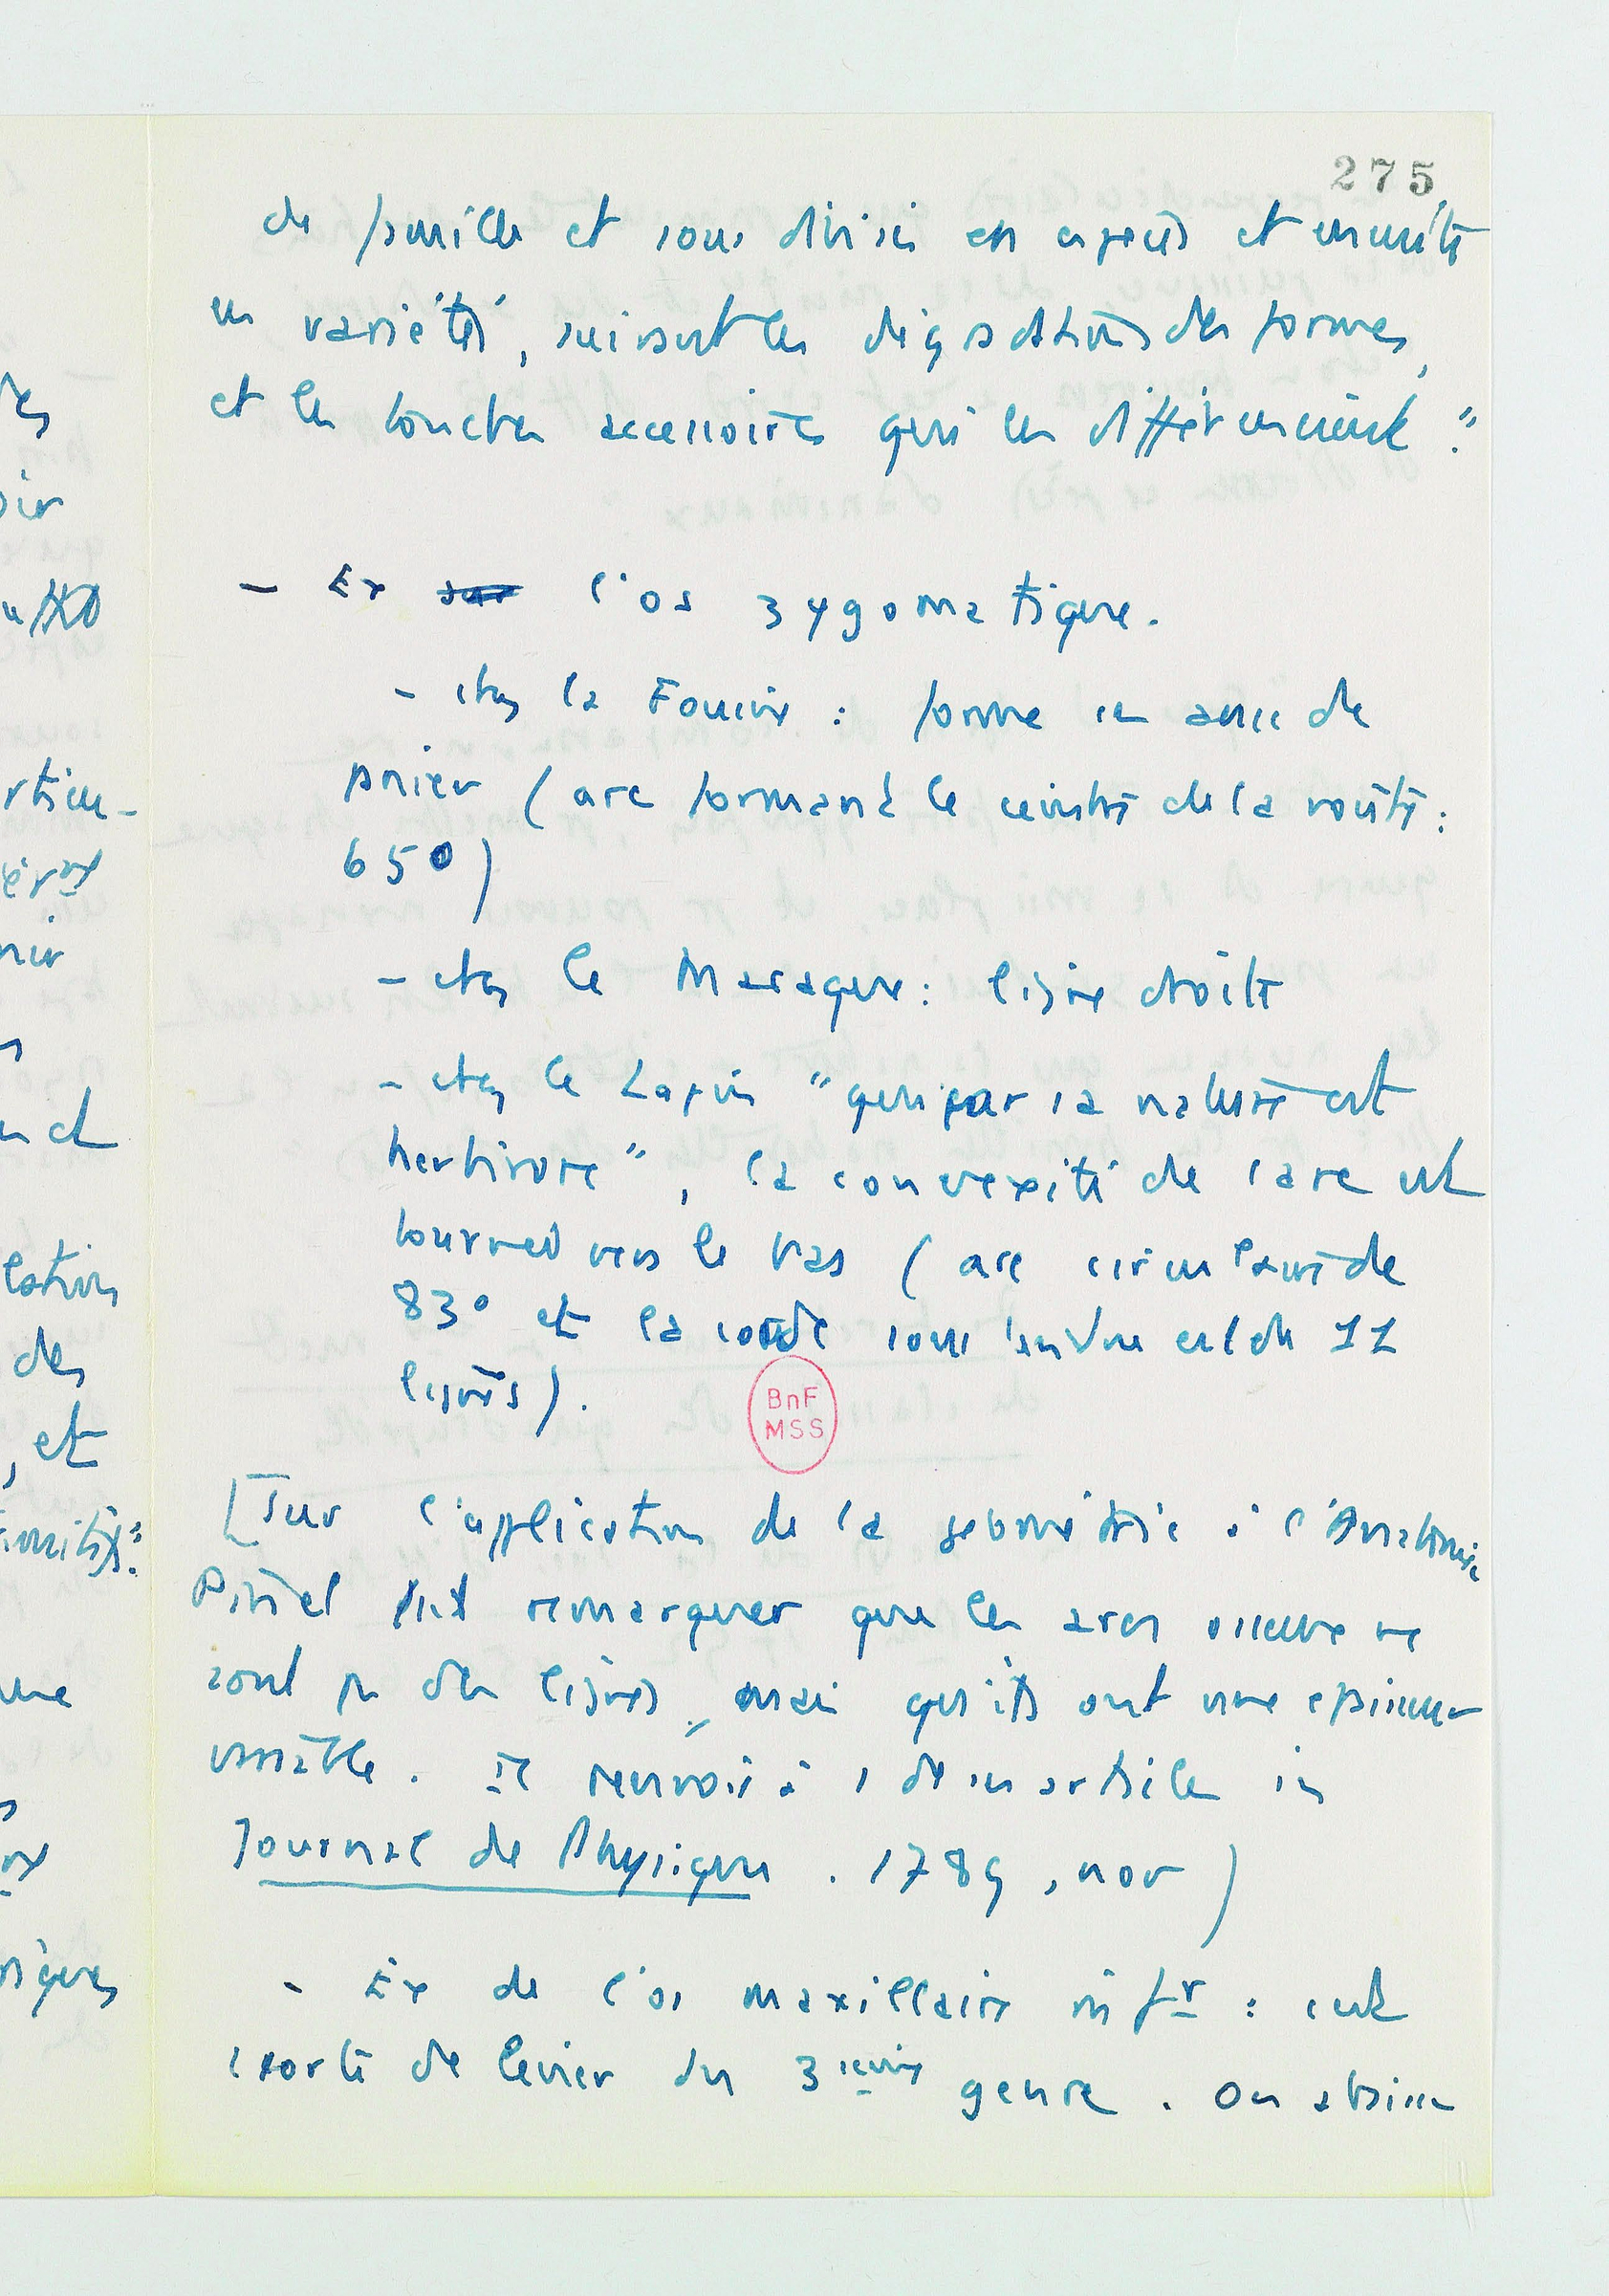 275
de famille et sous divisée en espèces et ensuite
en variétés, suivant les dégradations des formes,
et les touches accessoires qui les différencient."
- Ex sur l'os zygomatique.
- chez la Fouine : forme en anse de
panier (arc formant le ceintre de la voûte :
65°)
- chez le Macaque : ligne droite
- chez le Lapin "qui par sa nature est
herbivore", la convexité de l'arc est
tournée vers le bas (arc circulaire de
83° et la corde sous tendue est de 11
lignes).
[Sur l'application de la géométrie à l'Anatomie,
Pinel fait remarquer que les arcs osseux ne
sont pas des lignes, mais qu'ils ont une épaisseur
variable. Il renvoie à 1 de ses articles in
Journal de Physique. 1789, nov)
- Ex de l'os maxillaire infr : c'est
1 sorte de levier du 3ième genre. On abaisse
BnF
MSS
des
oir
rticu-
nir
lation
des
, et